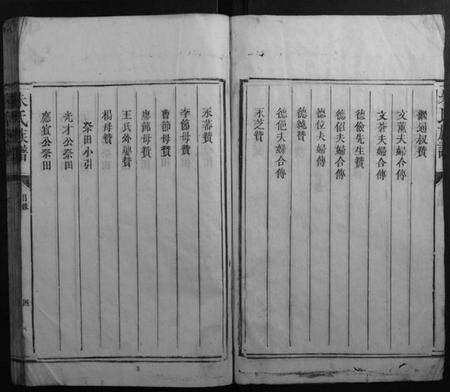 繼通叔贊
文薰夫婦合傳
文蒼夫婦合傳
德儉先生贊
德紹夫婦合傳
德位夫婦傳
德純贊
德他夫婦合傳
永芝贊
永蕃贊
李節母贊
曹節母贊
廖節母贊
王氏外舅贊
楊母贊
祭田小引
光才公祭田
應賓公祭田
朱氏族譜
目錄